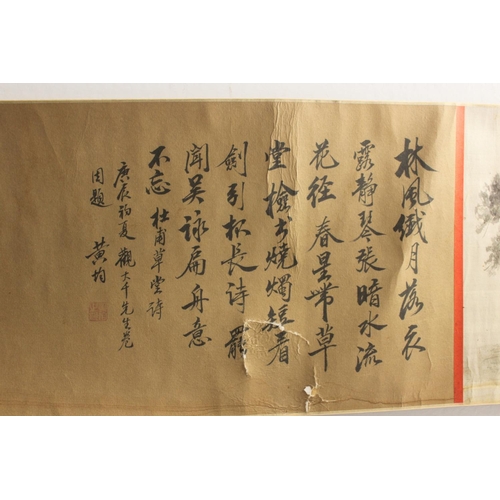 林风纖月落衣
露靜琴張暗水流
花径春星带草
堂檢书燒燭短看
劍引杯長诗罷
闻吴詠扁舟意
不忘 杜甫草堂诗
庚辰初夏觀大千先生卷
因题 黄均